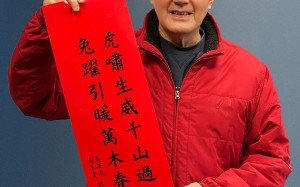 虎嘯生威千山過
兔躍引暖萬木春